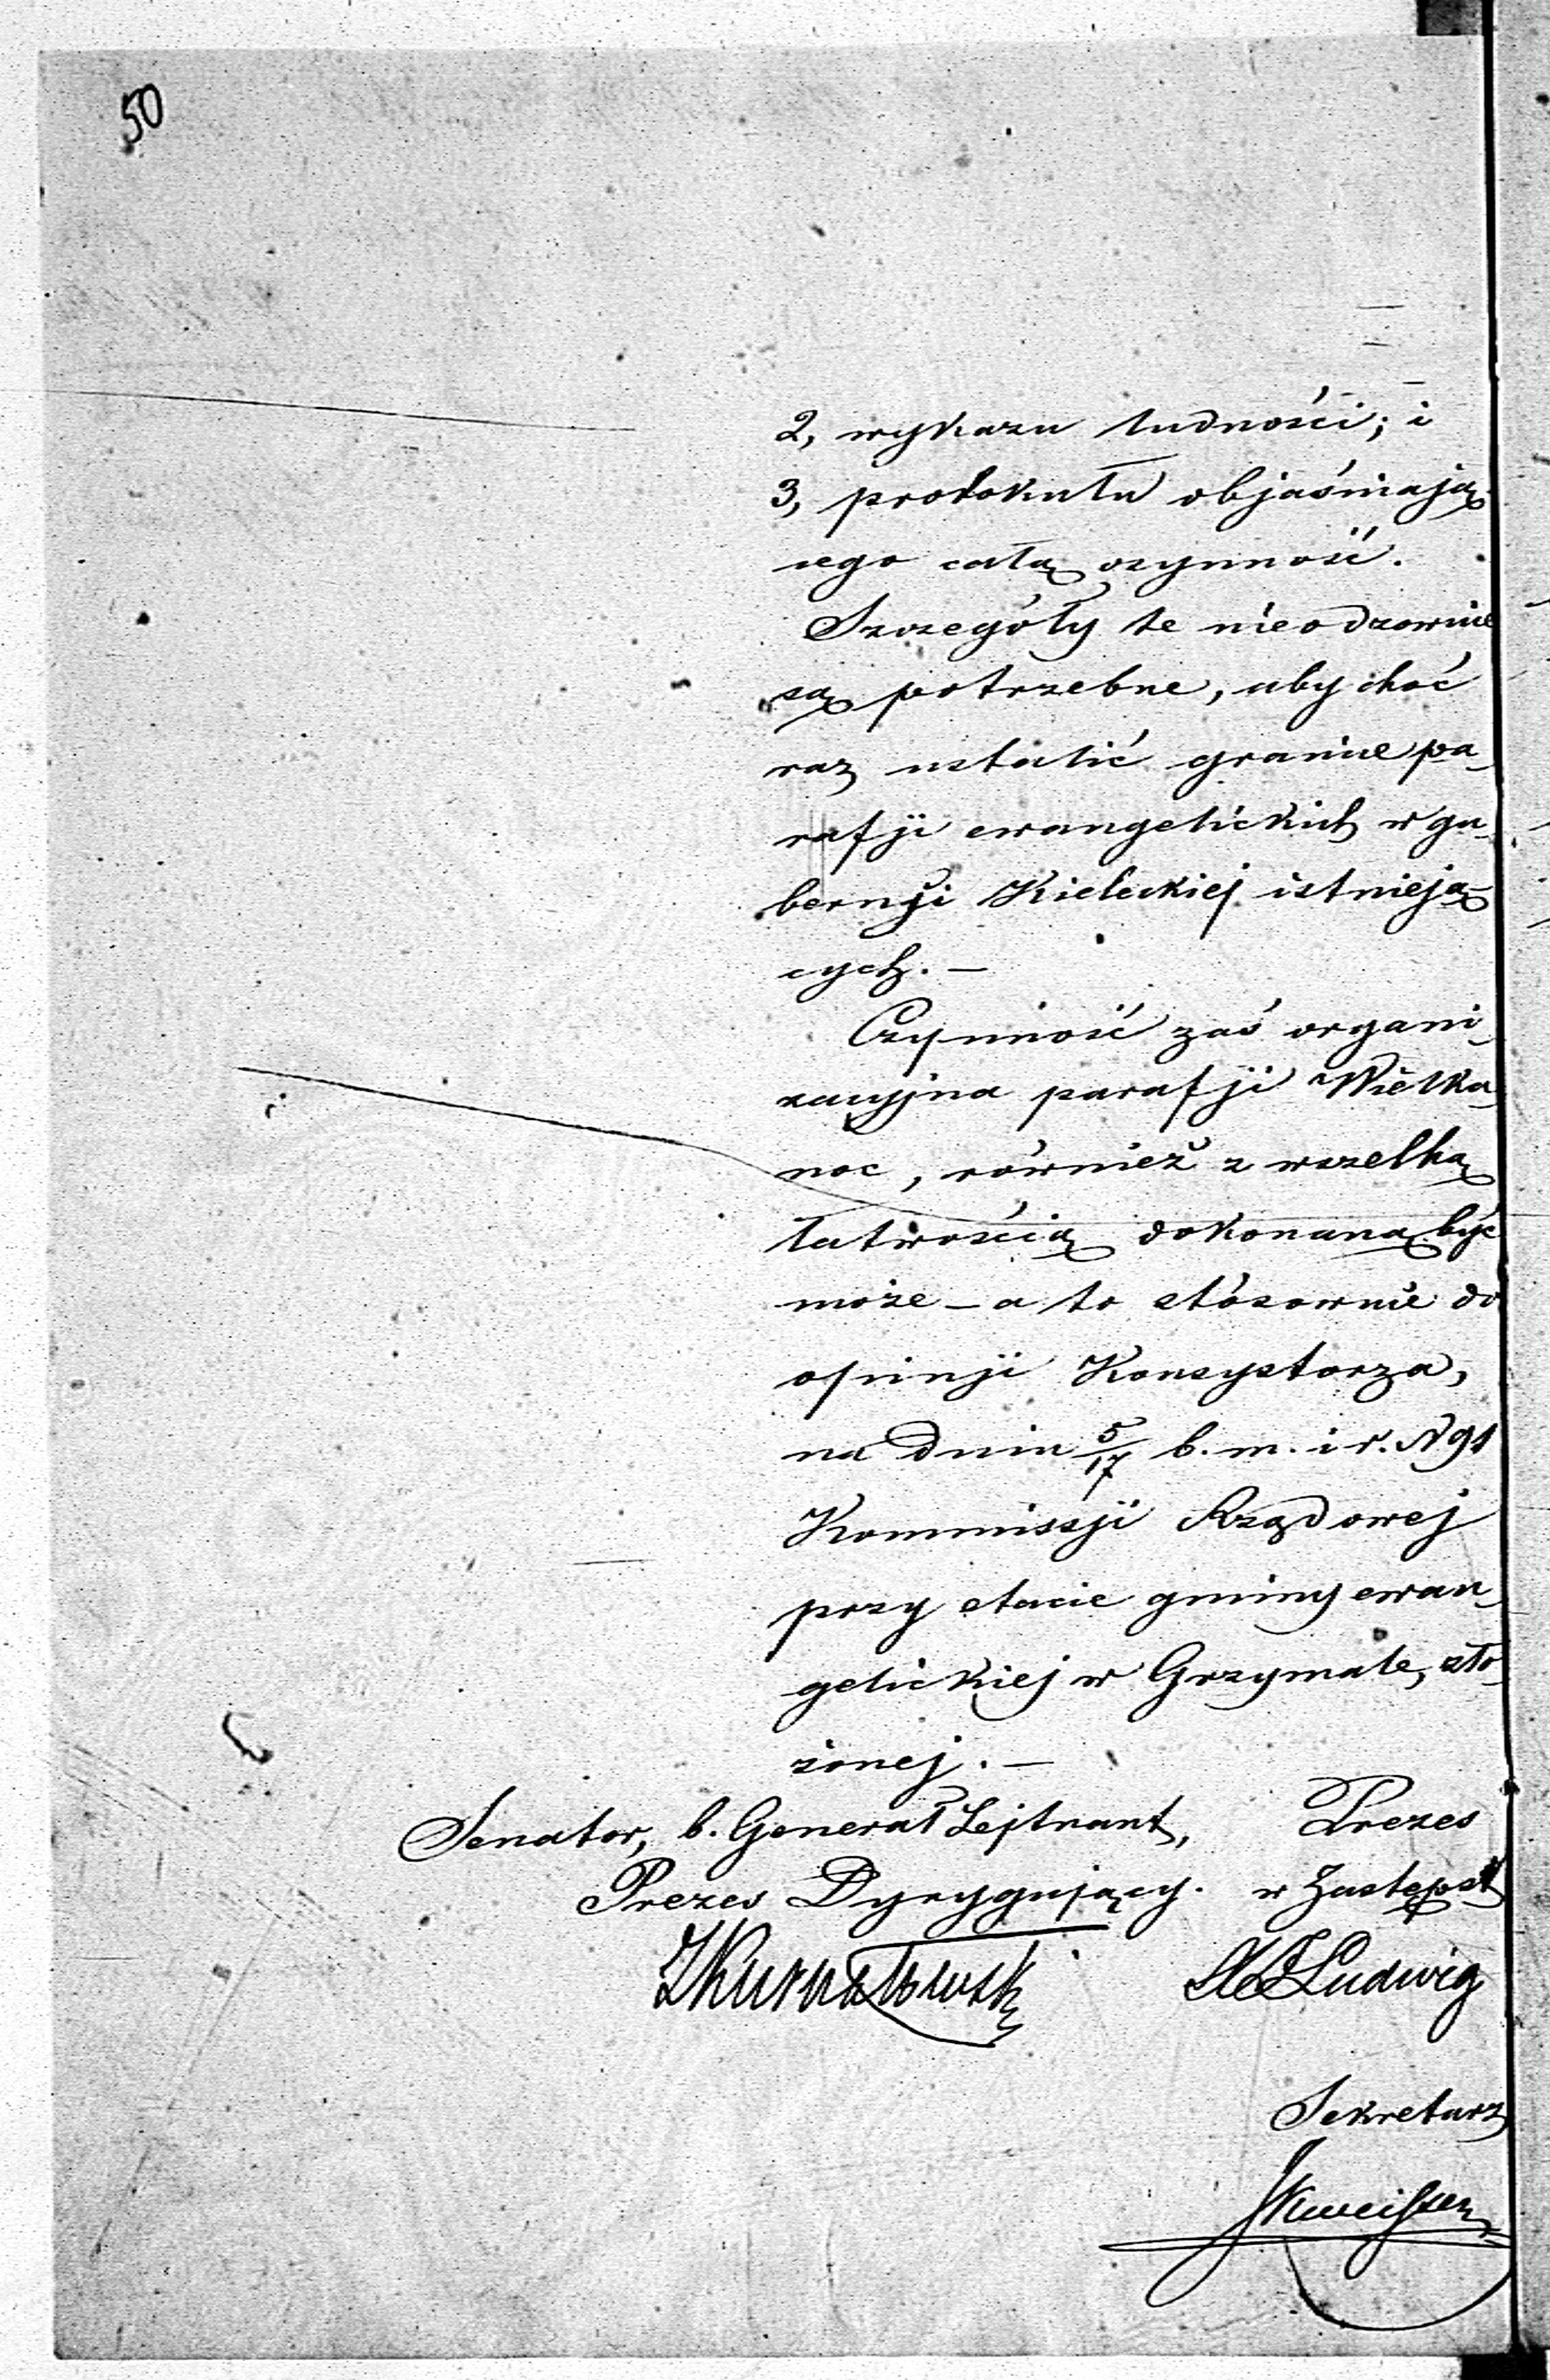 50
2, wykazu ludności; i
3, protokułu objaśniają
cego całą czynność.
Szczegóły te nieodzownie
są potrzebne, aby choć
raz ustalić granice pa-
rafji ewangelickich w gu-
bernji Kieleckiej istnieją-
cych. —
Czynność zaś organi-
zacyjna parafji Wielka-
noc, również z wszelką
łatwością dokonaną być
może — a to stósownie do
opinji Konsystorza,
na dniu 5/17 b. m. i r. N 91
Kommissji Rządowej
przy etacie gminy ewan-
gelickiej w Grzymale, zło-
żonej. —
Senator, b. Generał Lejtnant, Prezes
Prezes Dyrygujący. w Zastępst
Ludwig
Sekretarz